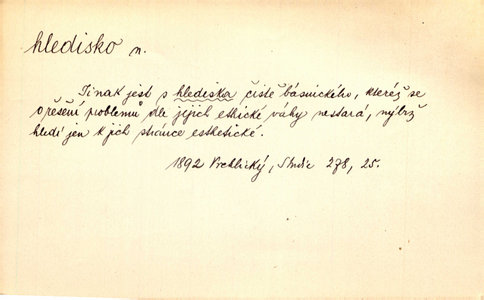 hledisko n.
Jinak jest s hlediska čistě básnického, kteréž se
o řešení problemů dle jejich ethické váhy nestará, nýbrž
hledí jen k jich stránce esthetické.
1892 Vrchlický, Studie 278, 25.